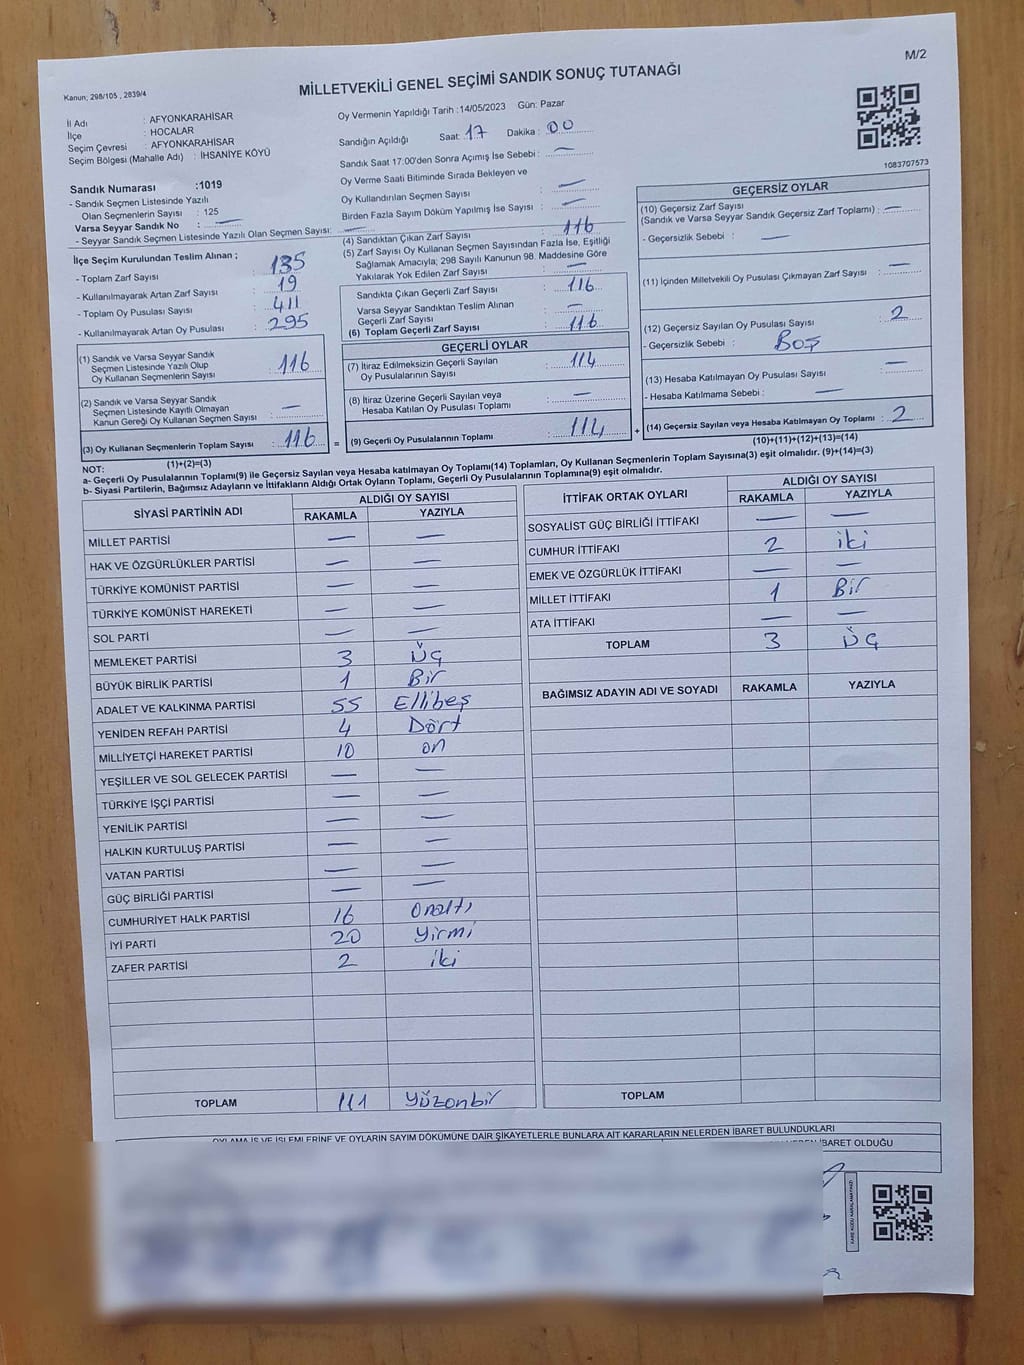 M/2
Kanun; 298/105 , 2839/4
MİLLETVEKİLİ GENEL SEÇİMİ SANDIK SONUÇ TUTANAĞI
İl Adı : AFYONKARAHİSAR
İlçe : HOCALAR
Seçim Çevresi : AFYONKARAHİSAR
Seçim Bölgesi (Mahalle Adı) : İHSANİYE KÖYÜ
Sandık Numarası :1019
- Sandık Seçmen Listesinde Yazılı
Olan Seçmenlerin Sayısı : 125
Varsa Seyyar Sandık No : —
- Seyyar Sandık Seçmen Listesinde Yazılı Olan Seçmen Sayısı: —
İlçe Seçim Kurulundan Teslim Alınan ;
- Toplam Zarf Sayısı : 135
- Kullanılmayarak Artan Zarf Sayısı : 19
- Toplam Oy Pusulası Sayısı : 411
- Kullanılmayarak Artan Oy Pusulası : 295
(1) Sandık ve Varsa Seyyar Sandık
Seçmen Listesinde Yazılı Olup
Oy Kullanan Seçmenlerin Sayısı : 116
(2) Sandık ve Varsa Seyyar Sandık
Seçmen Listesinde Kayıtlı Olmayan
Kanun Gereği Oy Kullanan Seçmen Sayısı : —
(3) Oy Kullanan Seçmenlerin Toplam Sayısı : 116
(1)+(2)=(3)
Oy Vermenin Yapıldığı Tarih :14/05/2023 Gün: Pazar
Sandığın Açıldığı Saat: 17 Dakika : 00
Sandık Saat 17:00'den Sonra Açımış İse Sebebi : —
Oy Verme Saati Bitiminde Sırada Bekleyen ve
Oy Kullandırılan Seçmen Sayısı : —
Birden Fazla Sayım Döküm Yapılmış İse Sayısı : —
(4) Sandıktan Çıkan Zarf Sayısı : 116
(5) Zarf Sayısı Oy Kullanan Seçmen Sayısından Fazla İse, Eşitliği
Sağlamak Amacıyla; 298 Sayılı Kanunun 98. Maddesine Göre
Yakılarak Yok Edilen Zarf Sayısı : —
Sandıkta Çıkan Geçerli Zarf Sayısı : 116
Varsa Seyyar Sandıktan Teslim Alınan
Geçerli Zarf Sayısı : —
(6) Toplam Geçerli Zarf Sayısı : 116
GEÇERLİ OYLAR
(7) İtiraz Edilmeksizin Geçerli Sayılan
Oy Pusulalarının Sayısı : 114
(8) İtiraz Üzerine Geçerli Sayılan veya
Hesaba Katılan Oy Pusulası Toplamı : —
= (9) Geçerli Oy Pusulalarının Toplamı : 114
1083707573
GEÇERSİZ OYLAR
(10) Geçersiz Zarf Sayısı
(Sandık ve Varsa Seyyar Sandık Geçersiz Zarf Toplamı) : —
- Geçersizlik Sebebi : —
(11) İçinden Milletvekili Oy Pusulası Çıkmayan Zarf Sayısı : —
(12) Geçersiz Sayılan Oy Pusulası Sayısı : 2
- Geçersizlik Sebebi : BOŞ
(13) Hesaba Katılmayan Oy Pusulası Sayısı : —
- Hesaba Katılmama Sebebi : —
+ (14) Geçersiz Sayılan veya Hesaba Katılmayan Oy Toplamı : 2
(10)+(11)+(12)+(13)=(14)
NOT:
a- Geçerli Oy Pusulalarının Toplamı(9) ile Geçersiz Sayılan veya Hesaba katılmayan Oy Toplamı(14) Toplamları, Oy Kullanan Seçmenlerin Toplam Sayısına(3) eşit olmalıdır. (9)+(14)=(3)
b- Siyasi Partilerin, Bağımsız Adayların ve İttifakların Aldığı Ortak Oyların Toplamı, Geçerli Oy Pusulalarının Toplamına(9) eşit olmalıdır.
SİYASİ PARTİNİN ADI ALDIĞI OY SAYISI
RAKAMLA YAZIYLA
MİLLET PARTİSİ — —
HAK VE ÖZGÜRLÜKLER PARTİSİ — —
TÜRKİYE KOMÜNİST PARTİSİ — —
TÜRKİYE KOMÜNİST HAREKETİ — —
SOL PARTİ — —
MEMLEKET PARTİSİ 3 Üç
BÜYÜK BİRLİK PARTİSİ 1 Bir
ADALET VE KALKINMA PARTİSİ 55 Ellibeş
YENİDEN REFAH PARTİSİ 4 Dört
MİLLİYETÇİ HAREKET PARTİSİ 10 on
YEŞİLLER VE SOL GELECEK PARTİSİ — —
TÜRKİYE İŞÇİ PARTİSİ — —
YENİLİK PARTİSİ — —
HALKIN KURTULUŞ PARTİSİ — —
VATAN PARTİSİ — —
GÜÇ BİRLİĞİ PARTİSİ — —
CUMHURİYET HALK PARTİSİ 16 Onaltı
İYİ PARTİ 20 Yirmi
ZAFER PARTİSİ 2 iki
TOPLAM 111 Yüzonbir
İTTİFAK ORTAK OYLARI ALDIĞI OY SAYISI
RAKAMLA YAZIYLA
SOSYALİST GÜÇ BİRLİĞİ İTTİFAKI — —
CUMHUR İTTİFAKI 2 iki
EMEK VE ÖZGÜRLÜK İTTİFAKI — —
MİLLET İTTİFAKI 1 Bir
ATA İTTİFAKI — —
TOPLAM 3 Üç
BAĞIMSIZ ADAYIN ADI VE SOYADI RAKAMLA YAZIYLA
TOPLAM
OYLAMA İŞ VE İŞLEMLERİNE VE OYLARIN SAYIM DÖKÜMÜNE DAİR ŞİKAYETLERLE BUNLARA AİT KARARLARIN NELERDEN İBARET BULUNDUKLARI
İBARET OLDUĞU